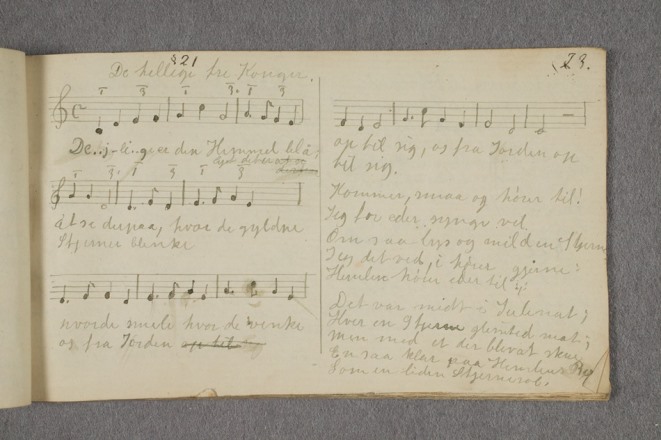 §21
De hellige tre Konger.
De..j..li..ge er den Himmel blå;
at se derpaa, hvor de gyldne
Stjerner blinke
hvorde smile hvor de vinke
os fra Jorden
23.
op til sig, os fra Jorden op
til sig.
Kommer, smaa og hører til!
Jeg for eder synge vil
Om saa lys og mild en Stjerne
Jeg det ved, i hører gjerne:
Himlen hører eder til
Det var midt i Julenat;
Hver en Stjerne glimted mat;
men med et der blev at skue
En saa klar paa Himlens Bue
Som en liden Stjernesol.